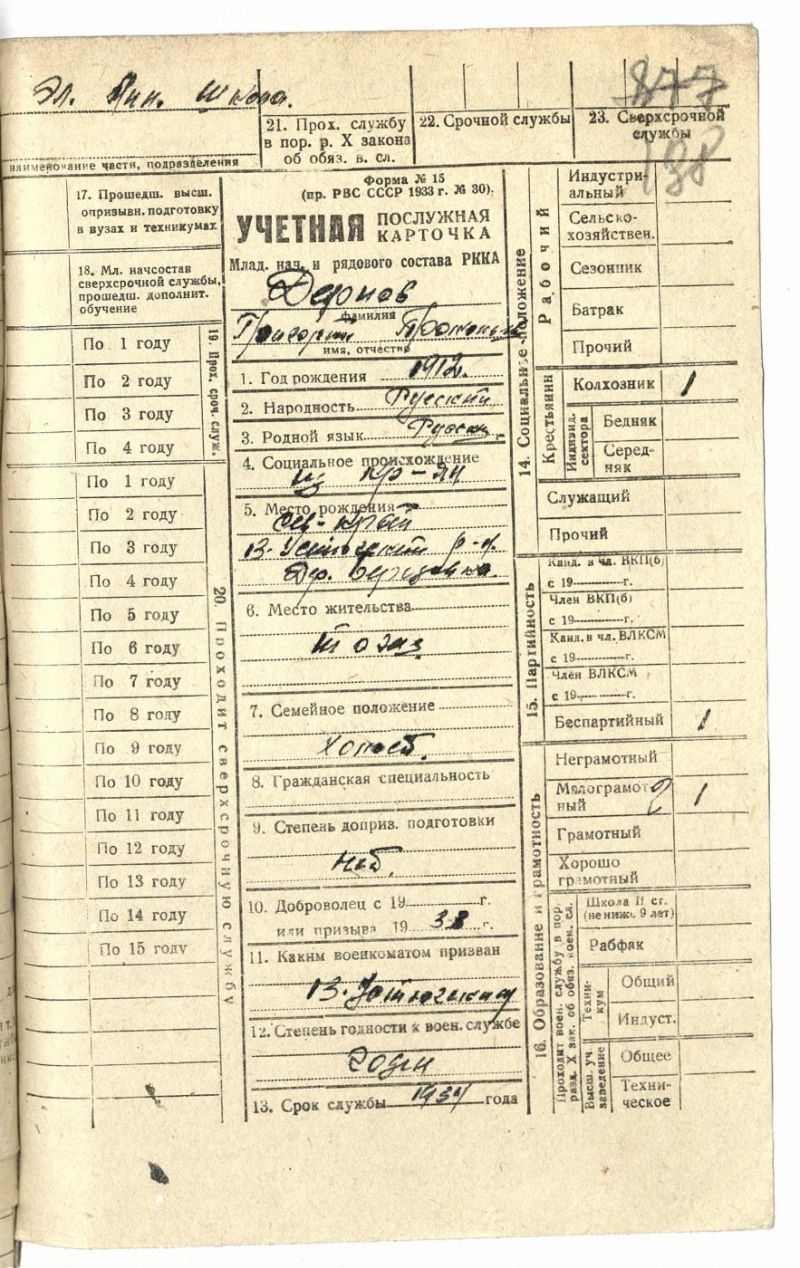 Эл. Мин. Школа.
наименование части, подразделения
21. Прох. службу
в пор. р. X закона
об обяз. в. сл.
22. Срочной службы
877
23. Сверхсрочной
службы
198
17. Прошедш. высш.
опризывн. подготовку
в вузах и техникумах
18. Мл. начсостав
сверхсрочной службы,
прошедш. дополнит.
обучение
19. Прох. сроч. служ.
По 1 году
По 2 году
По 3 году
По 4 году
20. Проходит сверхсрочную службу
По 1 году
По 2 году
По 3 году
По 4 году
По 5 году
По 6 году
По 7 году
По 8 году
По 9 году
По 10 году
По 11 году
По 12 году
По 13 году
По 14 году
По 15 году
Форма № 15
(пр. РВС СССР 1933 г. № 30).
УЧЕТНАЯ ПОСЛУЖНАЯ
КАРТОЧКА
Млад. нач. и рядового состава РККА
фамилия
имя, отчество
1. Год рождения 1912.
2. Народность Русский
3. Родной язык Русск.
4. Социальное происхождение
из кр-ян
5. Место рождения
Сев-край
В-Устюгский р-н.
Дер.
6. Место жительства
то же
7. Семейное положение
Холост.
8. Гражданская специальность
9. Степень доприз. подготовки
Нет.
10. Доброволец с 19 г.
или призыва 19 38 г.
11. Каким военкоматом призван
В-Устюгским
12. Степень годности к воен. службе
Годен
13. Срок службы 1937 года
14. Социальное положение
Рабочий
Индустри-
альный
Сельско-
хозяйствен.
Сезонник
Батрак
Прочий
Крестьянин
Колхозник 1
Индивид.
сектора
Бедняк
Серед-
няк
Служащий
Прочий
15. Партийность
Канд. в чл. ВКП(б)
с 19 г.
Член ВКП(б)
с 19 г.
Канд. в чл. ВЛКСМ
с 19 г.
Член ВЛКСМ
с 19 г.
Беспартийный 1
16. Образование и грамотность
Неграмотный
Малограмот-
ный 2 1
Грамотный
Хорошо
грамотный
Проходит воен. службу в пор.
разд. X зак. об обяз. воен. сл.
Школа II ст.
(не ниже 9 лет)
Рабфак
Техни-
кум
Общий
Индуст.
Высш. уч.
заведение
Общее
Техни-
ческое